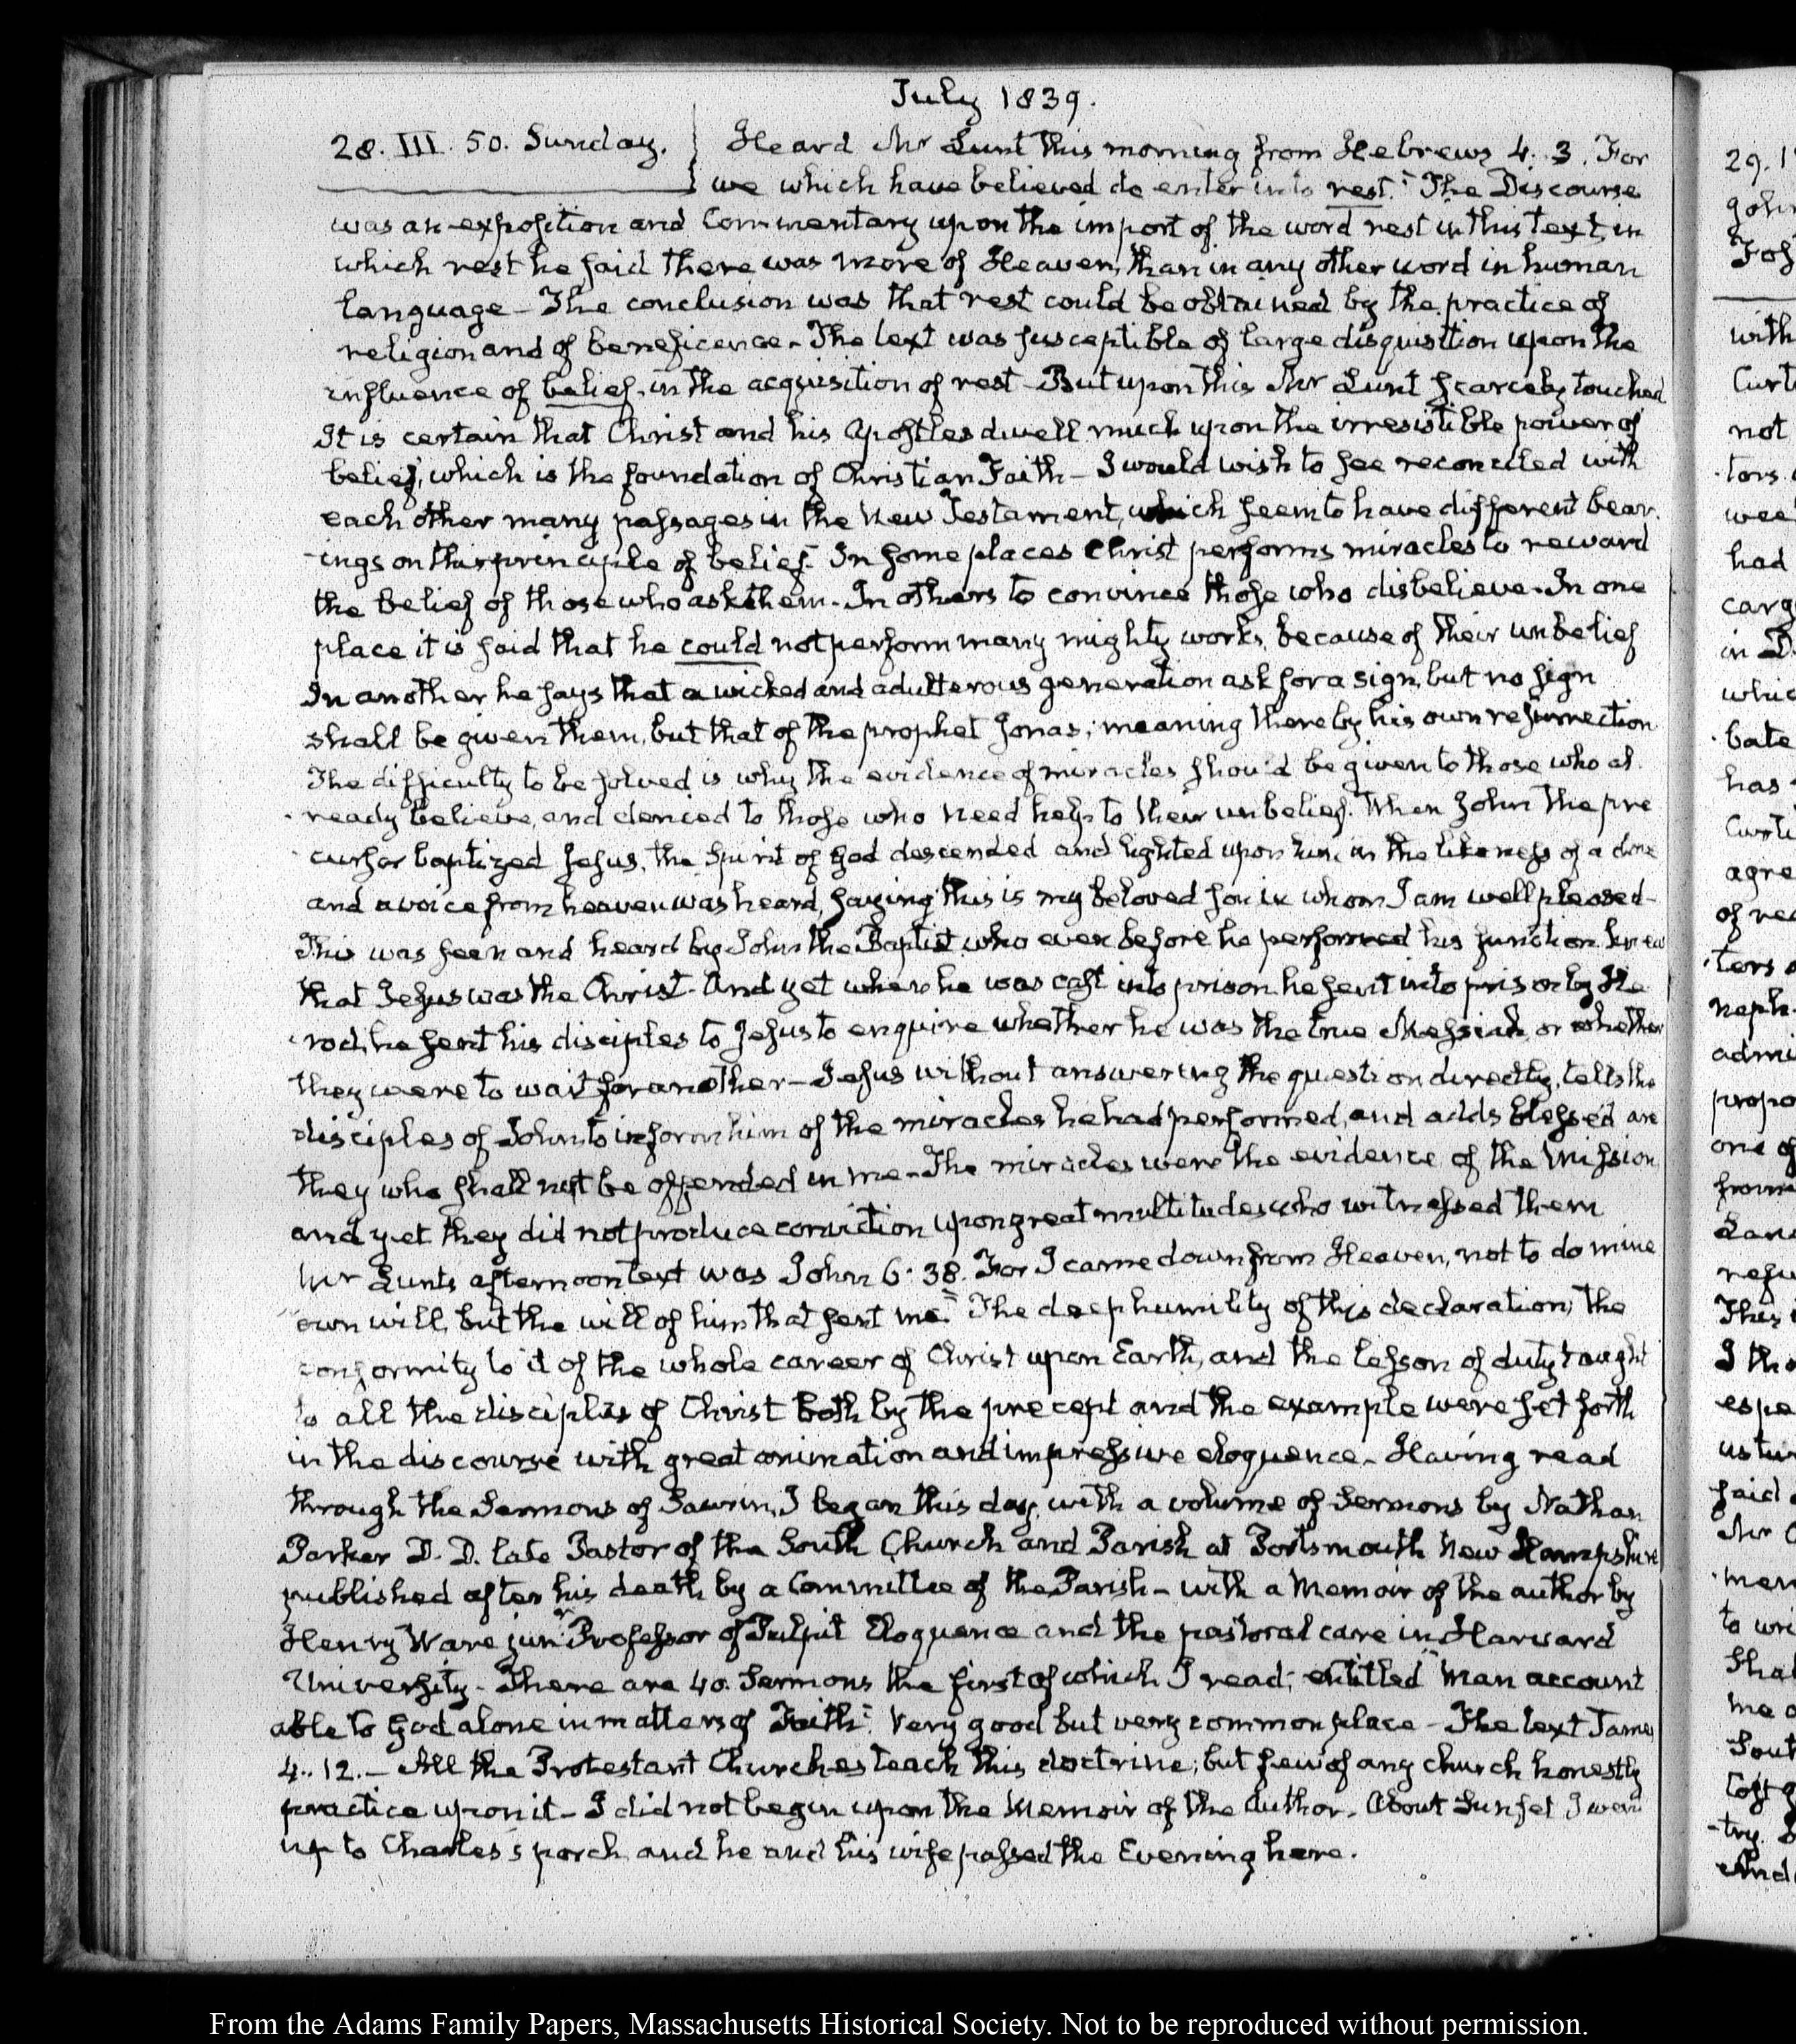 July 1839.
28. III. 50. Sunday. Heard Mr Lunt this morning from Hebrews 4. 3. For
we which have believed do enter into rest." The Discourse
was an exposition and Commentary upon the import of the word rest in this text, in
which rest he said there was more of Heaven, than in any other word in human
language - The conclusion was that rest could be obtained by the practice of
religion and of beneficence - The text was susceptible of large disquisition upon the
influence of belief, in the acquisition of rest - But upon this Mr Lunt scarcely touched
It is certain that Christ and his Apostles dwell much upon the irresistible power of
belief, which is the foundation of Christian Faith - I would wish to see reconciled with
each other many passages in the New Testament, which seem to have different bear-
ings on this principle of belief. In some places Christ performs miracles to reward
the belief of those who ask them - In others to convince those who disbelieve - In one
place it is said that he could not perform many mighty works, because of their unbelief
In another he says that a wicked and adulterous generation ask for a sign, but no sign
shall be given them, but that of the prophet Jonas; meaning thereby his own resurrection
The difficulty to be solved is why the evidence of miracles should be given to those who al-
ready believe, and denied to those who need help to their unbelief. When John the pre
cursor baptized Jesus, the Spirit of God descended and lighted upon him in the likeness of a dove
and a voice from heaven was heard, saying this is my beloved son in whom I am well pleased -
This was seen and heard by John the Baptist, who even before he performed his function knew
that Jesus was the Christ - And yet when he was cast into prison he sent into prison by He
rod, he sent his disciples to Jesus to enquire whether he was the true Messiah, or whether
they were to wait for another - Jesus without answering the question directly, tells the
disciples of John to inform him of the miracles he had performed, and adds blessed are
they who shall not be offended in me - The miracles were the evidence of the Mission
and yet they did not produce conviction upon great multitudes who witnessed them
Mr Lunt's afternoon text was John 6. 38. For I came down from Heaven, not to do mine
own will, but the will of him that sent me." The deep humility of this declaration, the
conformity to it of the whole career of Christ upon Earth, and the lesson of duty taught
to all the disciples of Christ both by the precept and the example were set forth
in the discourse with great animation and impressive eloquence - Having read
through the Sermons of Saurin, I began this day, with a volume of Sermons by Nathan
Parker D. D. late Pastor of the South Church and Parish at Portsmouth New Hampshire
published after his death by a Committee of the Parish - with a Memoir of the author by
Henry Ware junr Professor of Pulpit Eloquence and the pastoral care in Harvard
University - There are 40. Sermons the first of which I read; entitled "Man account
able to God alone in matters of Faith". Very good but very common place - The text James
4. 12. - All the Protestant Churches teach this doctrine; but few if any church honestly
practice upon it - I did not begin upon the Memoir of the Author. About Sunset I went
up to Charles's porch, and he and his wife passed the Evening here.
29.
with
not
had
in
From the Adams Family Papers, Massachusetts Historical Society. Not to be reproduced without permission.